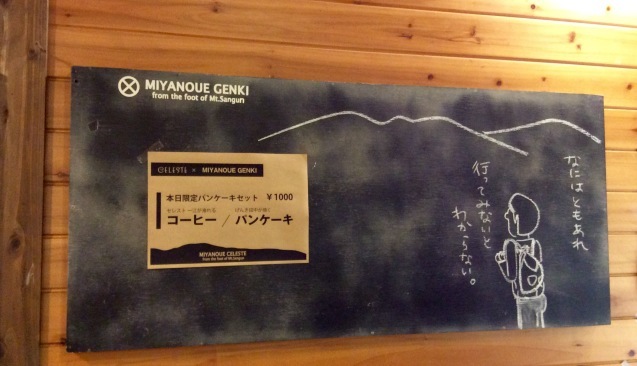 MIYANOUE GENKI
from the foot of Mt.Sangun
CELESTE × MIYANOUE GENKI
本日限定パンケーキセット ¥1000
コーヒー / パンケーキ
MIYANOUE CELESTE
from the foot of Mt.Sangun
なにはともあれ
行ってみないと
わからない。